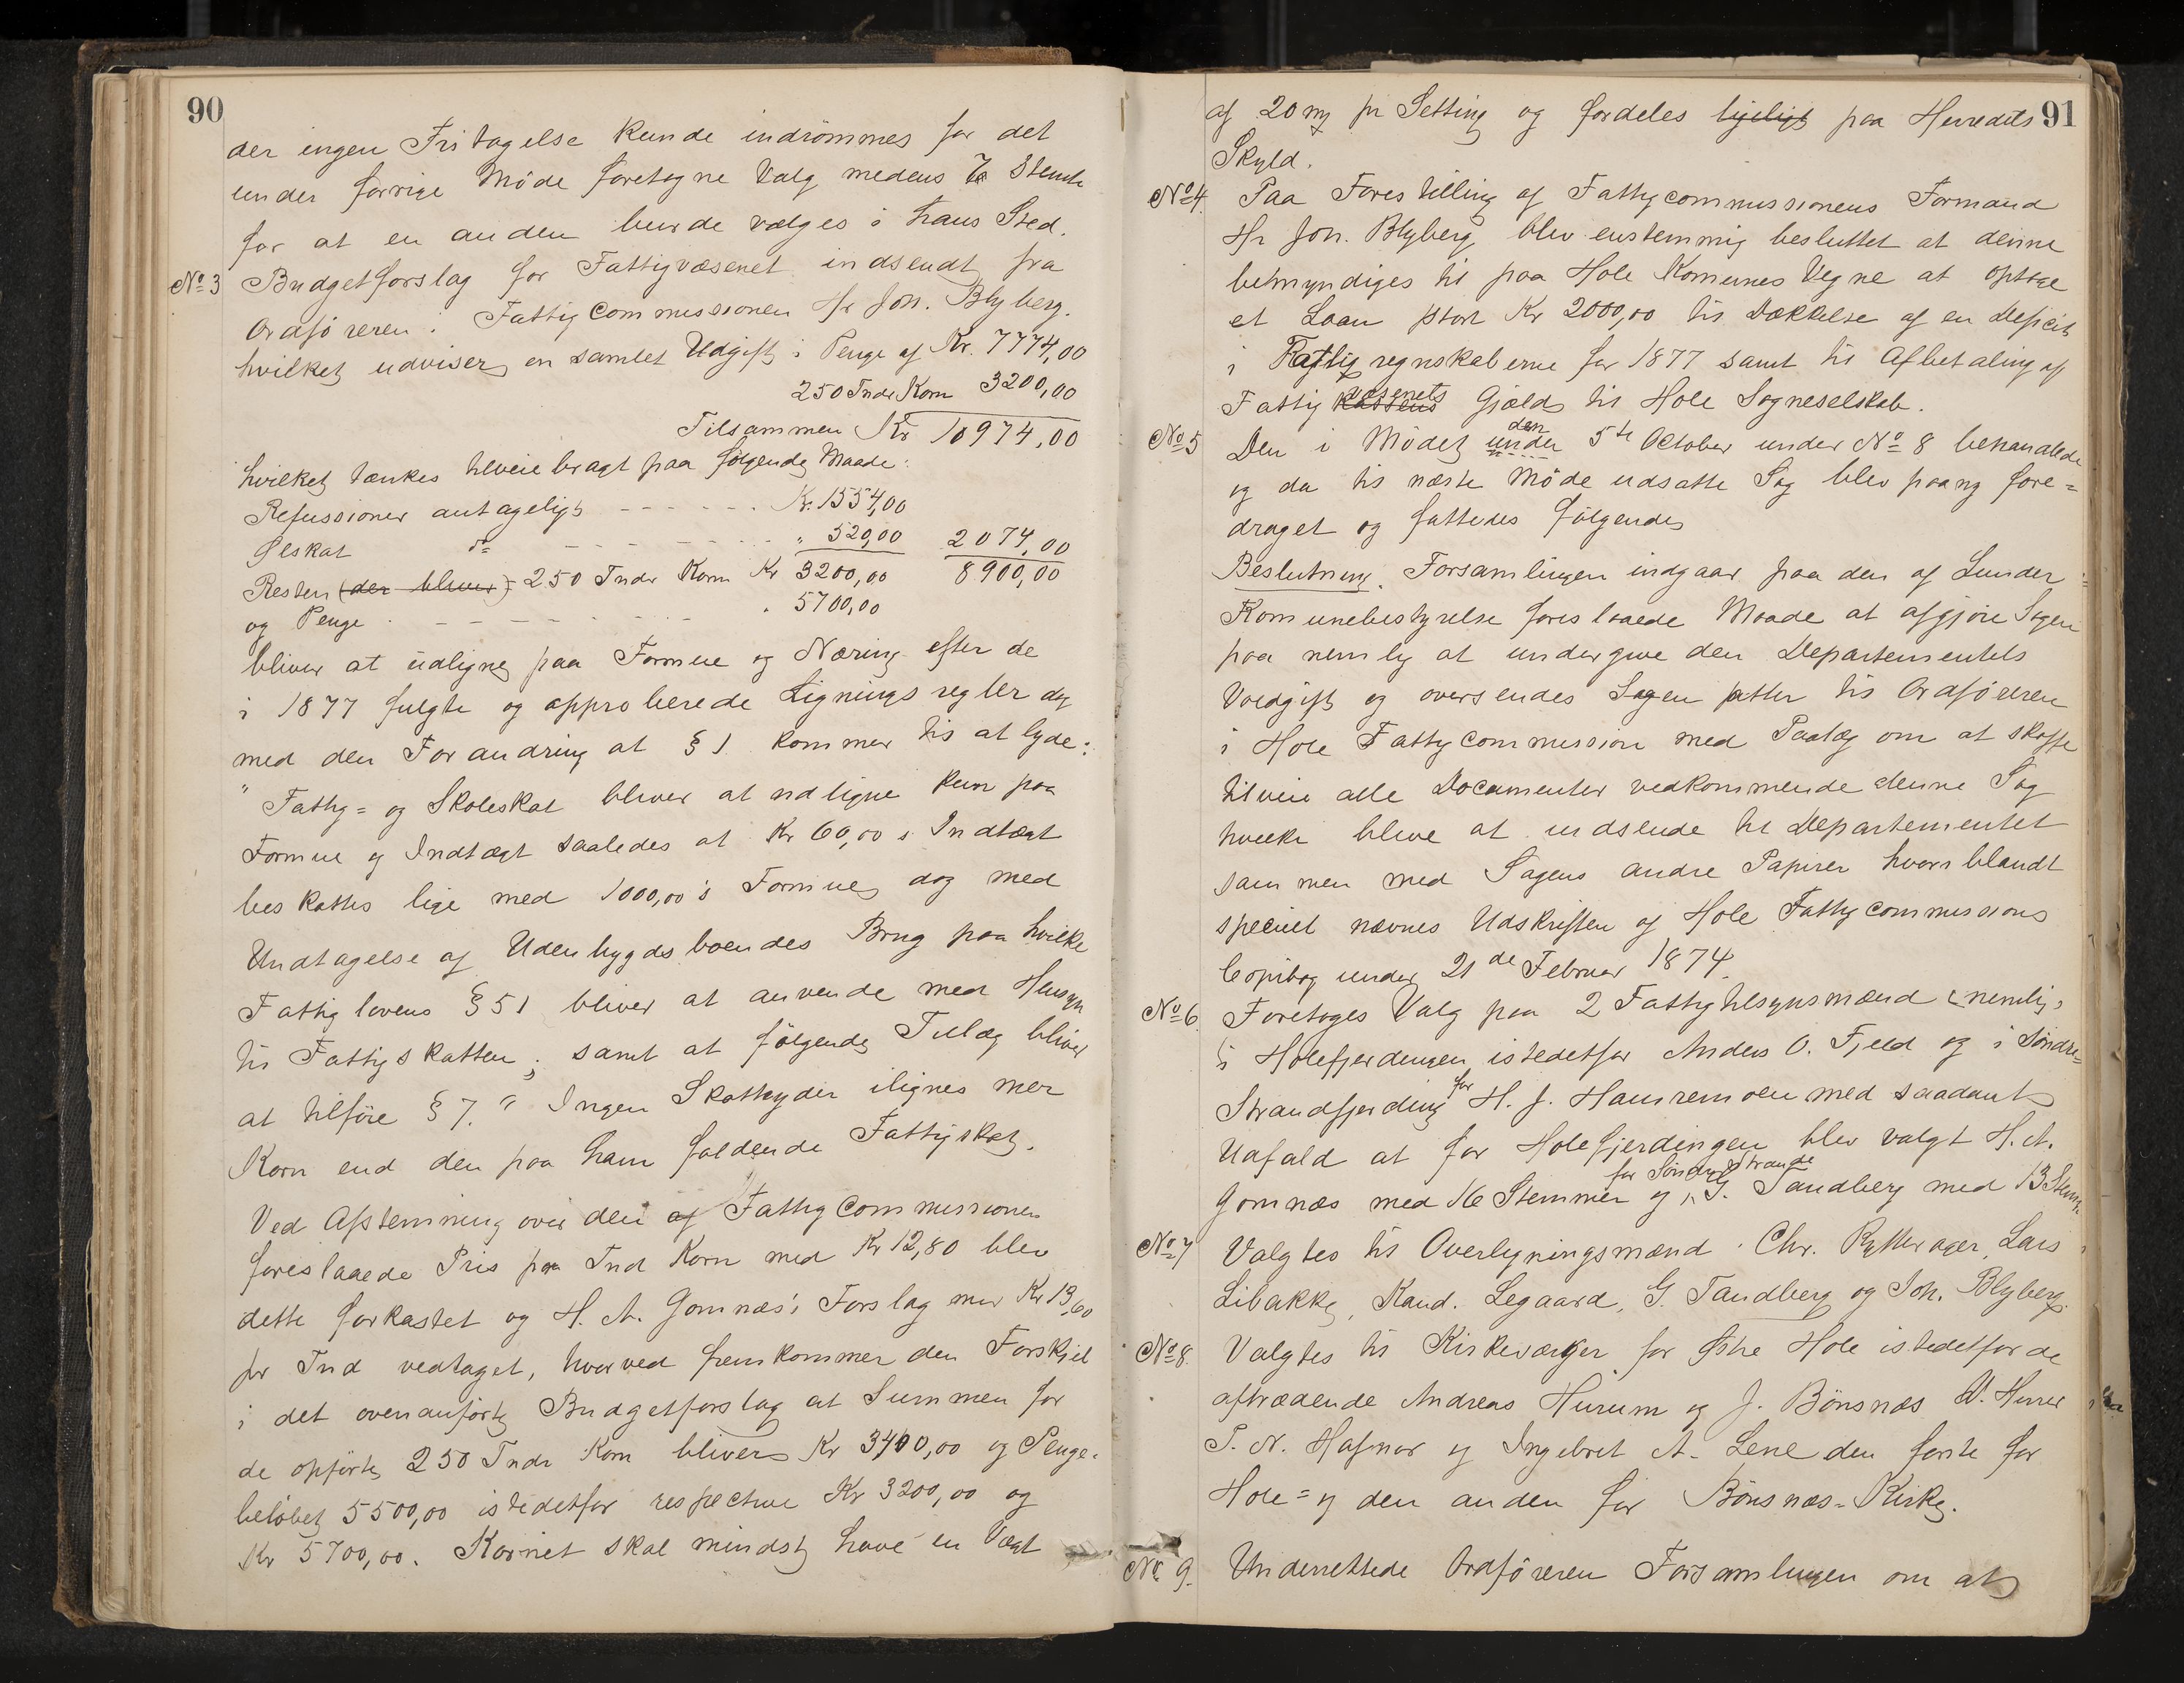 90
der ingen Fritagelse kunde indrömmes for det
under forrige Möde foretagne Valg medens 7 Stemte
for at en anden burde vælges i hans Sted.
No 3 Budgetforslag for Fattigvæsenet indsendt fra
Ordföreren i Fattigcommissionen Hr Joh. Blyberg.
hvilket udviser en samlet Udgift i Penge af Kr. 7774,00
250 Tndr Korn 3200,00
Tilsammen Kr 10974,00
hvilket tænkes tilveiebragt paa følgende Maade:
Refussioner antageligt - - - - - - Kr. 1554,00
Ølskat do - - - - - - - " 520,00 2074,00
Resten (der bliver) = 250 Tndr Korn Kr 3200,00 8900,00
og Penge - - - - - - - - " 5700,00
bliver at udligne paa Formue og Næring efter de
i 1877 fulgte og approberede Ligningsregler dog
med den Forandring at § 1 kommer til at lyde:
" Fattig= og Skoleskat bliver at udligne kun paa
Formue og Indtægt saaledes at Kr 60,00 s Indtægt
beskattes lige med 1000,00 s Formue, dog med
Undtagelse af Udenbygdsboendes Brug paa hvilke
Fattiglovens § 51 bliver at anvende med Hensyn
til Fattigskatten; samt at følgende Tillæg bliver
at tilföre § 7. " Ingen Skatteyder ilignes mer
Korn end den paa ham faldende Fattigskat.
Ved Afstemning over den af Fattigcommissionen
foreslaaede Pris pr Tnd Korn med Kr 12,80 blev
dette forkastet og H. A. Gomnæs's Forslag med Kr 13,60
pr Tnd vedtaget, hvorved fremkommer den Forskjel
i det ovenanførte Budgetforslag at Summen for
de opførte 250 Tndr Korn bliver Kr 3400,00 og Penge-
beløbet 5500,00 istedetfor respective Kr 3200,00 og
Kr 5700,00. Kornet skal mindst have en Vægt
91
af 20 pr Setting og fordeles ligeligt paa Herredets
Skyld.
No 4. Paa Forestilling af Fattigcommissionens Formand
Hr Joh. Blyberg blev enstemmig besluttet at denne
bemyndiges til paa Hole Komunes Vegne at optage
et Laan stort Kr 2000,00 til Dækkelse af en Deficit
i Fattigregnskaberne for 1877 samt til Afbetaling af
Fattigkassens væsenets Gjæld til Hole Sogneselskab.
No 5 Den i Mödet under den 5te October under No 8 behandlede
og da til næste Möde udsatte Sag blev paany fore=
draget og fattedes følgende
Beslutning. Forsamlingen indgaar paa den af Lunder
Komunebestyrelse foreslaaede Maade at afgjøre Sagen
paa nemlig at undergive den Departementets
Voldgift og oversendes Sagen atter til Ordføreren
i Hole Fattigcommission med Paalæg om at skaffe
tilveie alle Documenter vedkommende denne Sag
hvilke blive at indsende til Departementet
sammen med Sagens andre Papirer hvoriblandt
specielt nævnes Udskriften af Hole Fattigcommissions
Copibog under 21de Februar 1874.
No 6. Foretoges Valg paa 2 Fattigtilsynsmænd nemlig
i Holefjerdingen istedetfor Anders O. Fjeld og i Søndre=
Strandfjerding for H. J. Hamremoen med saadant
Udfald at for Holefjerdingen blev valgt H. A.
Gomnæs med 16 Stemmer og for Søndre Strande G. Tandberg med 13 Stem.
No 7 Valgtes til Overligningsmænd: Chr. Rytterager, Lars
Libakke, Kand. Legaard, G. Tandberg og Joh. Blyberg.
No 8. Valgtes til Kirkeværger for Østre Hole istedetfor de
aftrædende Andreas Hurum og J. Bönsnæs D'. Herrer
P. N. Hafnor og Ingebret A. Lene den første for
Hole= og den anden for Bönsnæs-Kirke.
No. 9. Underrettede Ordføreren Forsamlingen om at